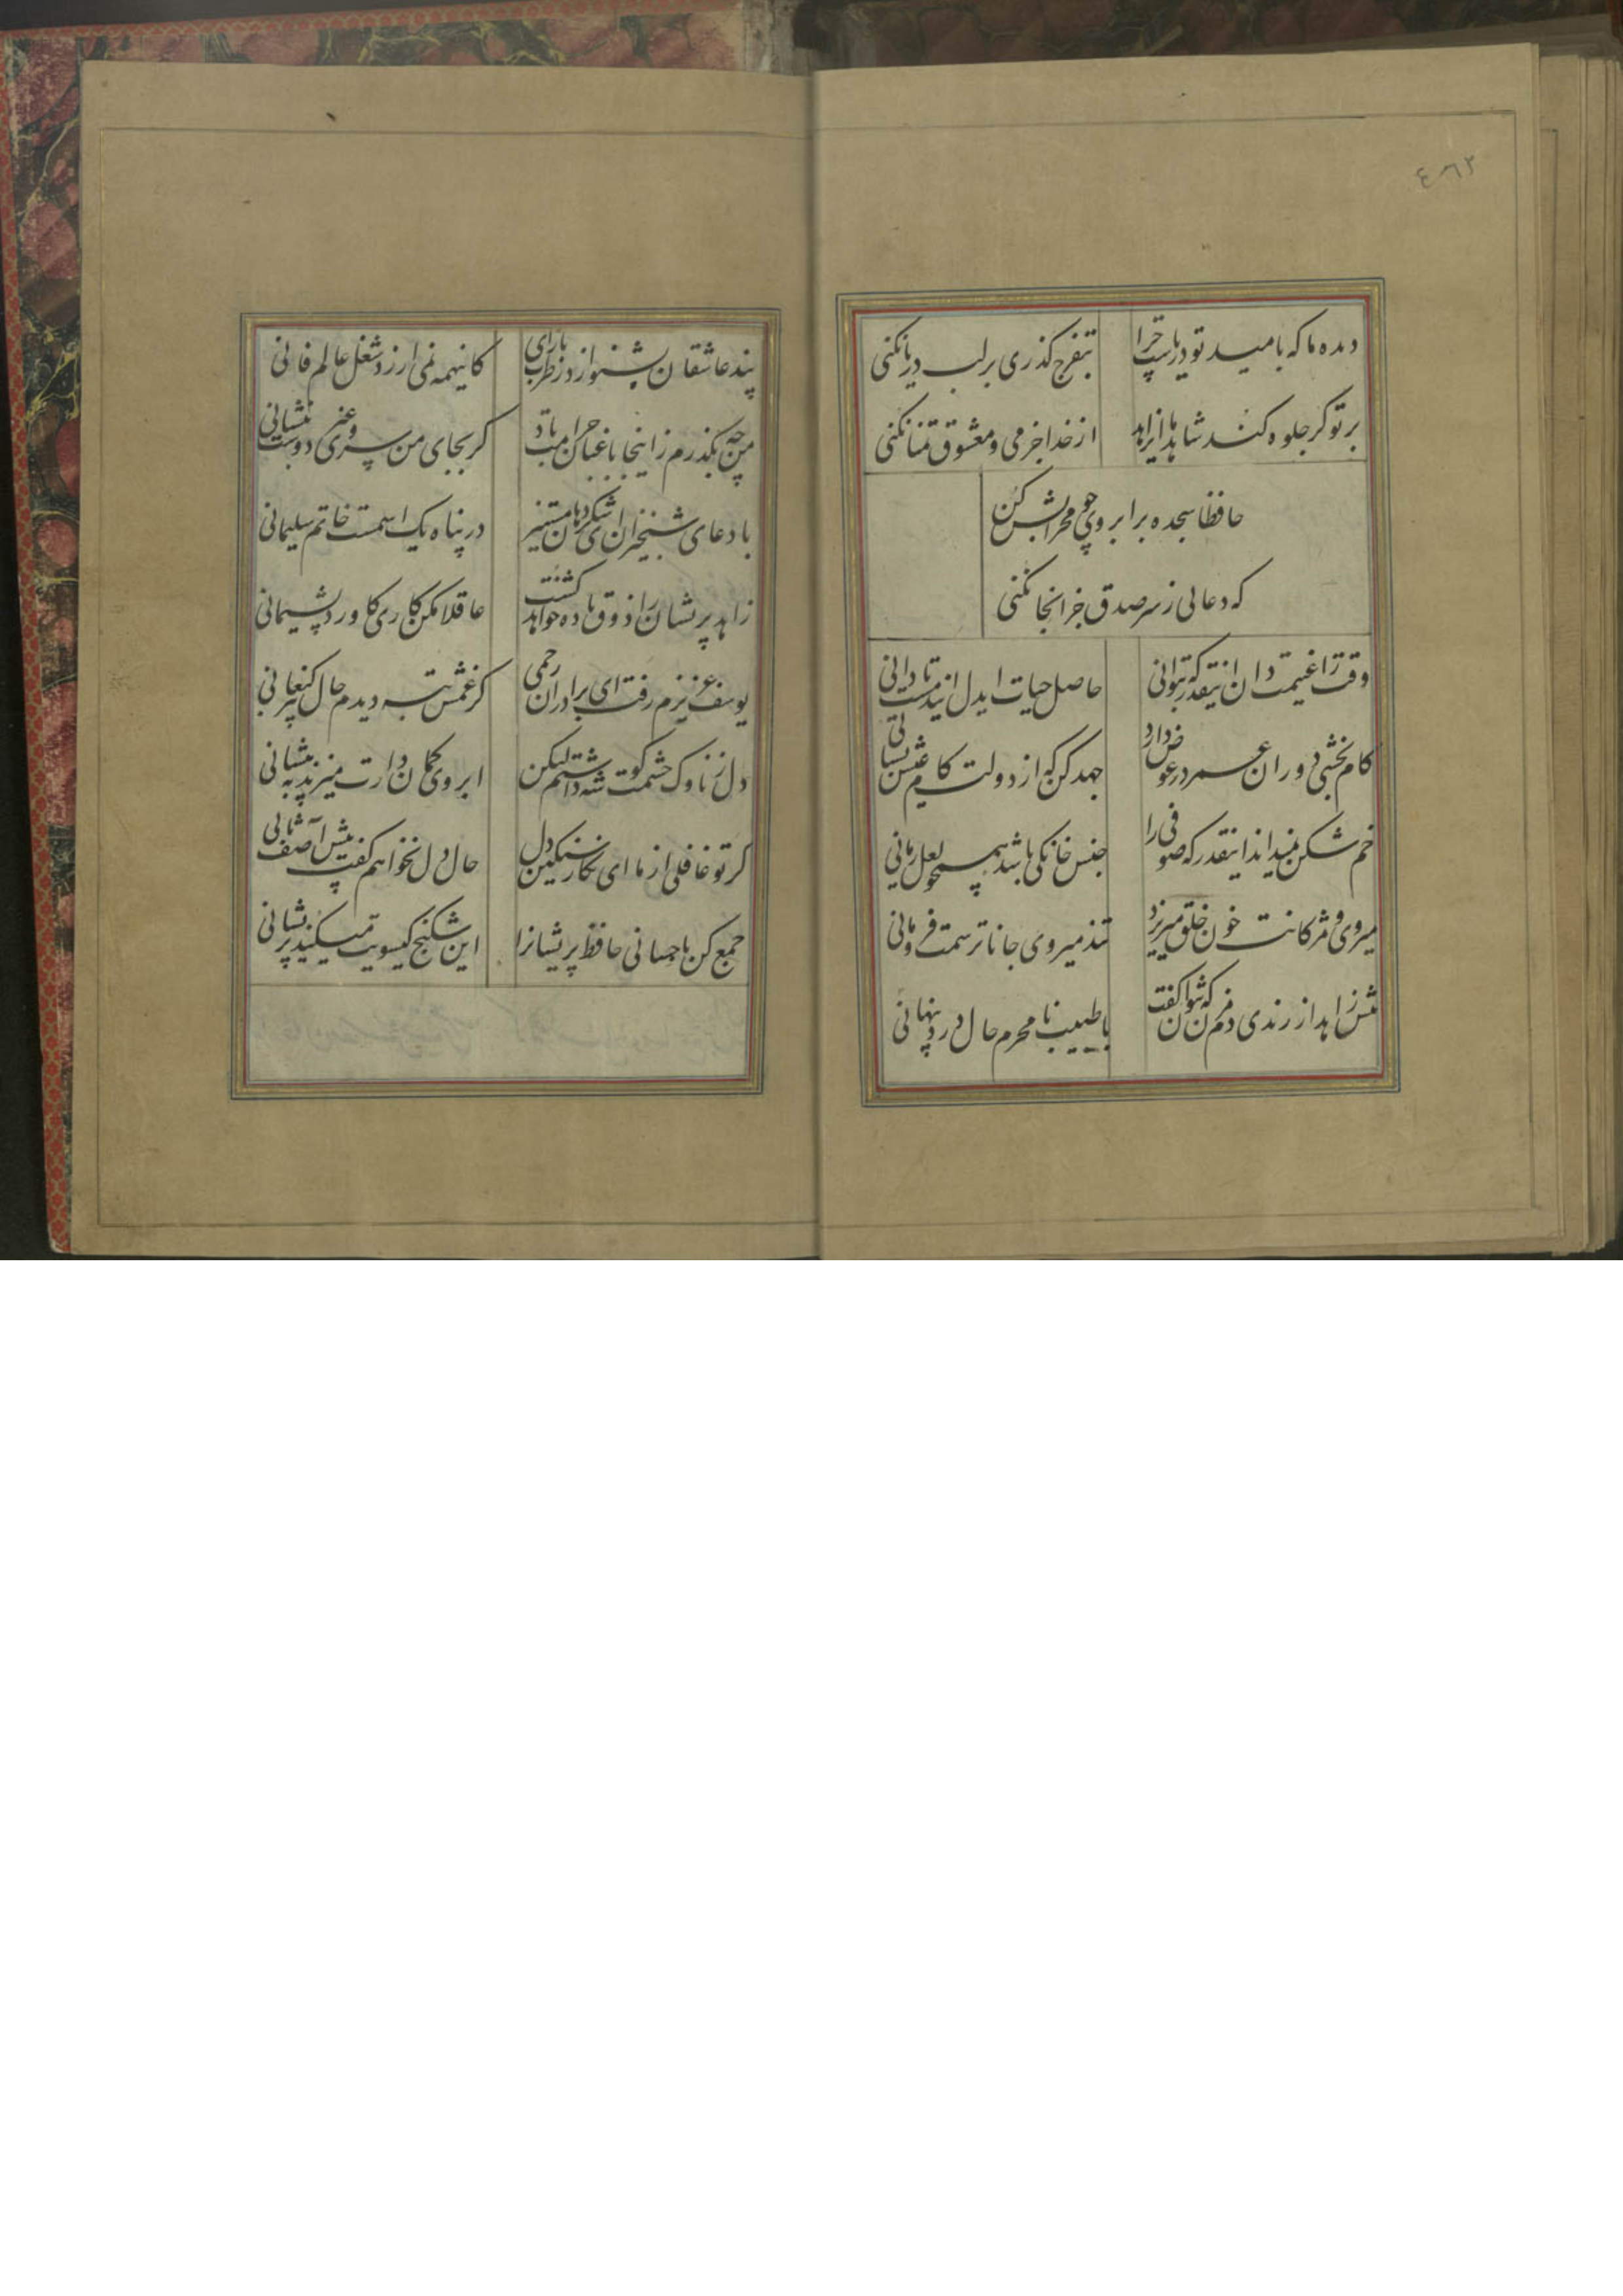 ٤٦٢
دیده ما که بامید تو دریاست چرا
بتفرج کذری بر لب دریا نکنی
بر تو کر جلوه کند شاهد ما ای زاهد
از خدا جز می و معشوق تمنا نکنی
حافظا سجده بر ابروی چو محرابش کن
که دعائی ز سر صدق جز انجا نکنی
وقت را غنیمت دان اینقدر که بتوانی
حاصل حیات ایدل ایندمست تا دانی
کام بخشی دوران عمر در عوض دارد
جهد کن که از دولت کام عیش بستانی
خم شکن نمیداند اینقدر که صوفی را
جنس خانکی باشد همچو لعل رمانی
میروی و مژکانت خون خلق میریزد
تند میروی جانا ترسمت فرو مانی
پیش زاهد از رندی دم مزن که نتوان کفت
با طبیب نامحرم حال درد پنهانی
پند عاشقان بشنو از در طرب بازای
کاینهمه نمی ارزد شغل عالم فانی
من چه بکذرم زاینجا باغبان حرامت باد
کر بجای من سروی غیر دوست بنشانی
با دعای شبخیزان ای شکر دهان مستیز
در پناه یک اسمست خاتم سلیمانی
زاهد پریشان را ذوق باده خواهد کشت
عاقلا مکن کاری کاورد پشیمانی
یوسف عزیزم رفت ای برادران رحمی
کز غمش تبه دیدم حال پیر کنعانی
دل ز ناوک چشمت کوشه داشتم لیکن
ابروی کمان دارت میزند به پیشانی
کر تو غافلی از ما ای نکار سنکین دل
حال دل نخواهم کفت پیش آصف ثانی
جمع کن باحسانی حافظ پریشانرا
این شکنج کیسویت میکند پریشانی